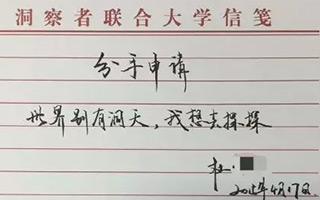 洞察者联合大学信笺
分手申请
世界别有洞天，我想去探探
杜
2015年4月17日